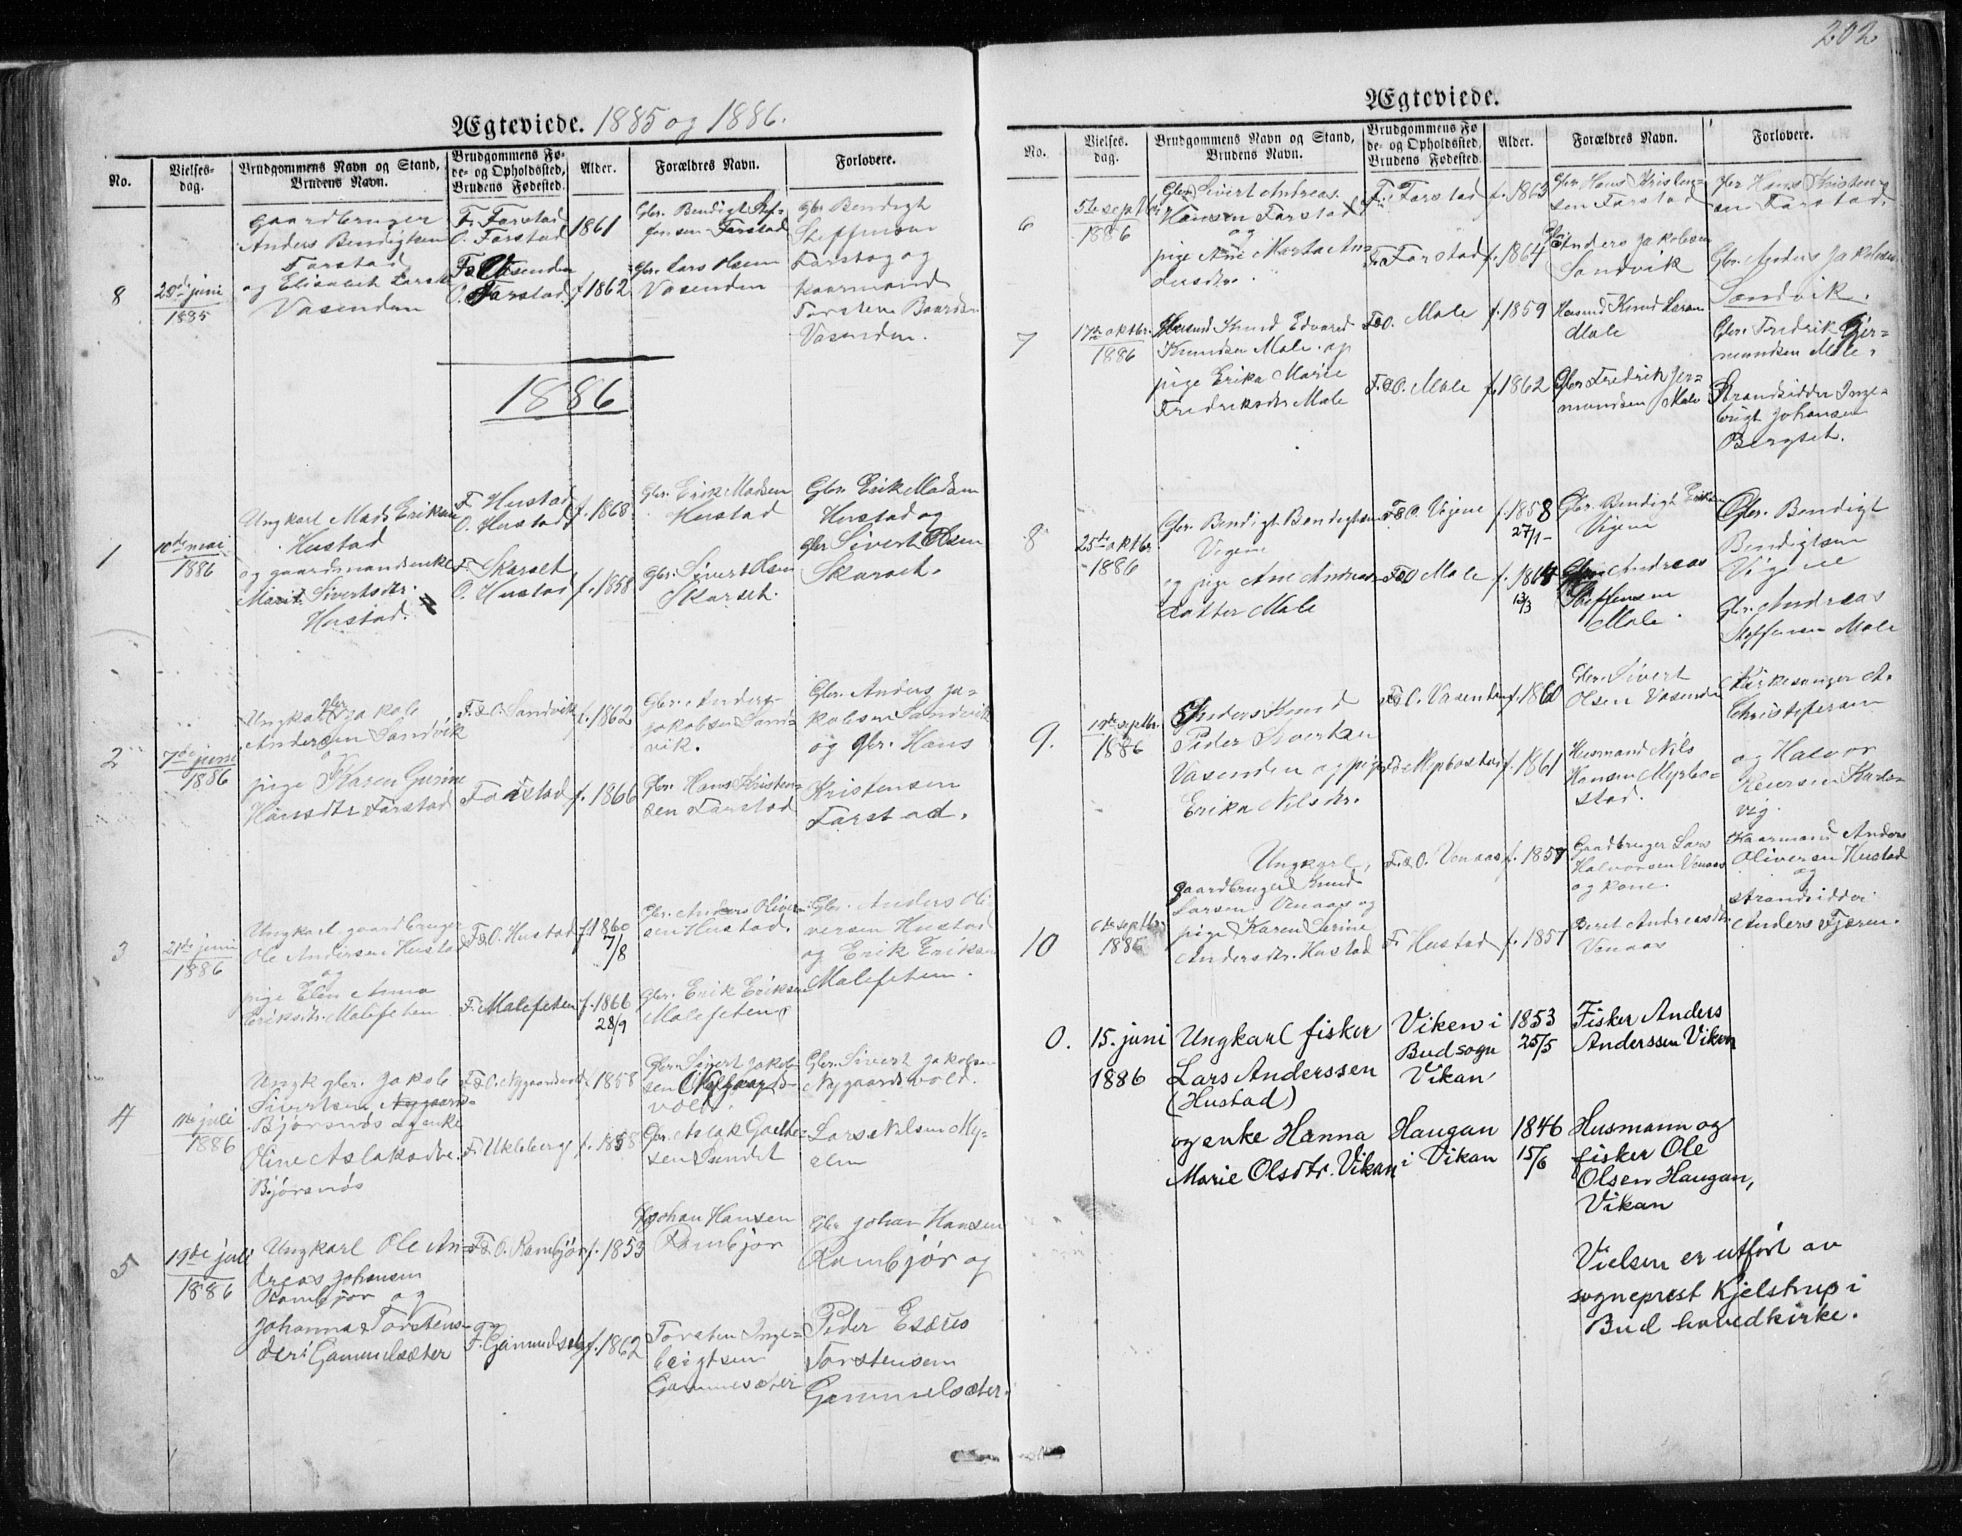 Ægteviede. 1885 og 1886.
No.
Vielses-
dag.
Brudgommens Navn og Stand,
Brudens Navn.
Brudgommens Fø-
de- og Opholdssted,
Brudens Fødested.
Alder.
Forældres Navn.
Forlovere.
8
28de juni
1885
gaardbruger
Anders Bendigtsen
Farstad
og Elisabet Larsdtr
Vasenden
F. Farstad
O. Farstad
F. Vasenden
O. Farstad
1861
f. 1862
Gbr. Bendigt Stef-
fensen Farstad
Gbr. Lars Olsen
Vasenden
Gbr Bendigt
Steffensen
Farstad og
kaarmand
Torsten Baardsen
Vasenden.
1886
1
10de mai
1886
Ungkarl Mads Eriksen
Hustad
og gaardmandsenke
Marit Sivertsdtr.
Hustad.
F. Hustad
O. Hustad
F. Skarset
O. Hustad
f. 1868
f. 1858
Gbr. Erik Madsen
Hustad
Gbr. Sivert Olsen
Skarset.
Gbr. Erik Madsen
Hustad og
gbr Sivert Olsen
Skarset.
2
7de juni
1886
Ungkarl gbr Jakob
Andersen Sandvik
og
pige Karen Gurine
Hansdtr Farstad
F.&O. Sandvik
Farstad
f. 1862
f. 1866
Gbr. Anders
Jakobsen Sand-
vik.
Gbr. Hans Kristen-
sen Farstad
Gbr. Anders Ja-
kobsen Sandvik
og gbr. Hans
Kristensen
Farstad.
3
21de juni
1886
Ungkarl gaardbruger
Ole Andersen Hustad
og
pige Elen Anna
Eriksdtr. Malefeten
F&O. Hustad
F. Malefeten
f. 1860
7/8
f. 1866
28/9
Gbr. Anders Oliver-
sen Hustad.
Gbr. Erik Eriksen
Malefeten
Gbr. Anders Oli-
versen Hustad
og Erik Eriksen
Malefeten.
4
juli
1886
Ungk. gbr. Jakob
Sivertsen Nygaard-
Bjørsnøs og enke
Oline Aslaksdtr.
Bjørsnøs
F&O. Nygaardsvold
F. Ukleberg
f. 1858
f. 1858
Gbr. Sivert Jakob-
sen Nygaards-
vold.
Gbr. Aslak
sen Sundet
Gbr. Sivert Jakobsen
Nygaardsvold.
Lars Nilsen My-
5
19de juli
1886
Ungkarl Ole An-
dreas Johansen
Rambjør og
Johanna Torstens-
dtr. Gammelsæter
F&O. Rambjør
F. Gammelsæter
f. 1853
f. 1862
Johan Hansen
Rambjør
Torsten Inge-
brigtsen
Gammelsæter
Gbr Johan Hansen
Rambjør og
Peder
Torstensen
Gammelsæter.
202
Ægteviede.
No.
Vielses-
dag.
Brudgommens Navn og Stand,
Brudens Navn.
Brudgommens Fø-
de- og Opholdssted,
Brudens Fødested.
Alder.
Forældres Navn.
Forlovere.
6
5te septbr
1886
Gbr. Sivert Andreas
Hansen Farstad
og
pige Ane Marta An-
dersdtr.
F. Farstad
F. Farstad
f. 1863
f. 1864
Gbr. Hans Kristen-
sen Farstad
Gbr Anders Jakobsen
Sandvik
Gbr Hans Kristen-
sen Farstad.
Gbr. Anders Jakobsen
Sandvik.
7
17de oktbr.
1886
Husmd Knud Edvard
Knudsen Male. og
pige Erika Marie
Fredriksdtr Male
F&O. Male
F&O. Male
f. 1859
f. 1862
Husmd Knud Larsen
Male
Gbr. Fredrik Jer-
mundsen Male
Gbr. Fredrik Jer-
mundsen Male.
Strandsidder Inge-
brigt Johansen
Bergset.
8
25de oktbr.
1886
Gbr. Bendigt Bendigtsen
Vigene
og pige Ane Andreas-
datter Male
F&O. Vigene
F&O Male
f. 1858
27/1
f. 1864
13/3
Gbr. Bendigt Eriksen
Vigene
Gbr. Andreas
Steffensen
Male.
Gbr. Bendigt
Bendigtsen
Vigene
Gbr. Andreas
Steffensen Male
9.
septbr.
1886
Knud
Peder Sivertsen
Vasenden og pige
Erika Nilsdtr.
F&O. Vasenden
F&O Myrbostad
f. 1860
f. 1861
Gbr. Sivert
Olsen Vasenden
Husmand Nils
Hansen Myrbo-
stad.
Kirkesanger A.
Christofersen
og Halvor
Reiersen Harde-
vig.
10
6te septbr.
1886
Ungkarl,
gaardbruger Knud
Larsen Vonaas og
pige Karen Serine
Andersdtr. Hustad
F.&O. Vonaas
F. Hustad
f. 1857
f. 1857
Gaardbruger Lars
Halvorsen Vonaas
og kone.
Beret Andreasdtr
Vonaas
Kaarmand Anders
Oliversen Hustad
og
strandsidder
Anders Fjæren.
0.
15. juni
1886
Ungkarl fisker
Lars Anderssen
(Hustad)
og enke Hanna
Marie Olsdtr. Vikan
Viken i
Bud sogn
Vikan
Haugan
i Vikan
1853
25/5
1846
15/6
Fisker Anders
Anderssen Viken
Husmann og
fisker Ole
Olsen Haugan,
Vikan
Vielsen er utført av
sogneprest Kjelstrup i
Bud hovedkirke.